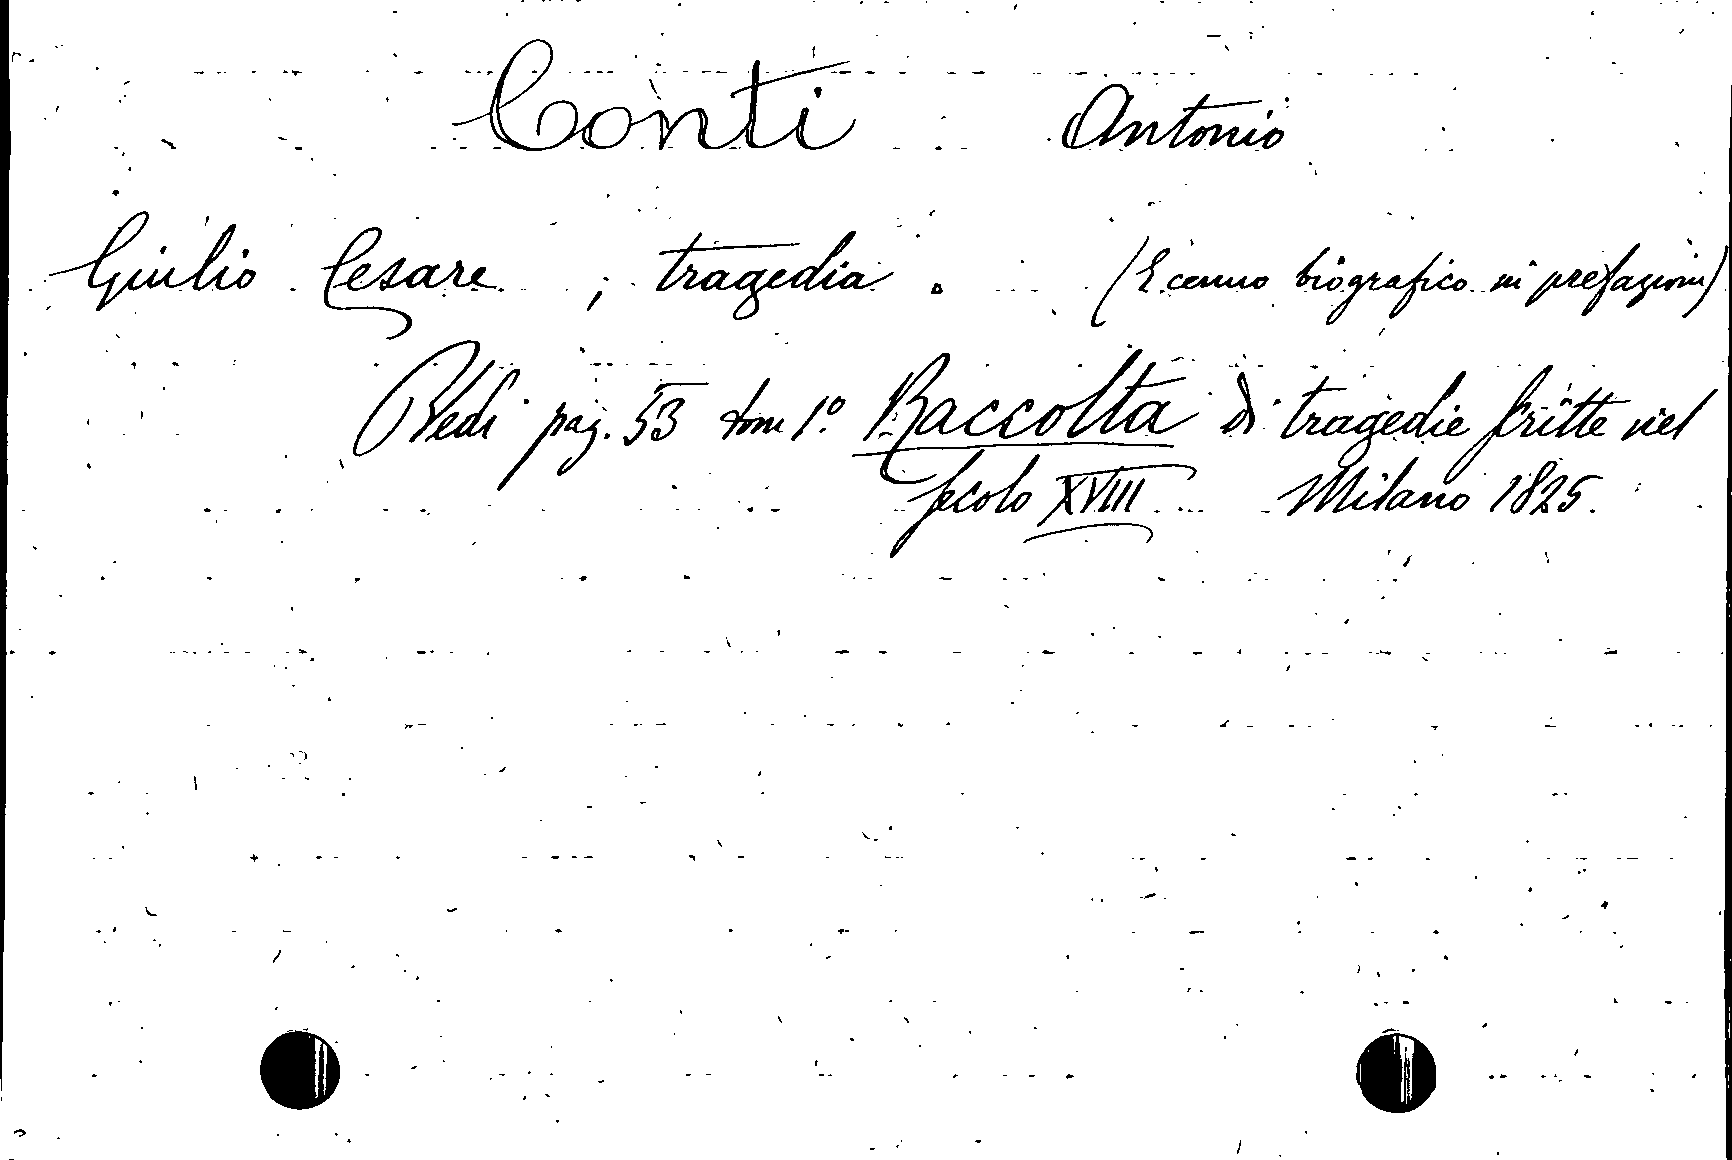 Conti Antonio
Giulio Cesare, tragedia. (E cenno biografico in prefazion)
Vedi pag. 53 tom 1º Raccolta di tragedie scritte nel
secolo XVIII Milano 1825.